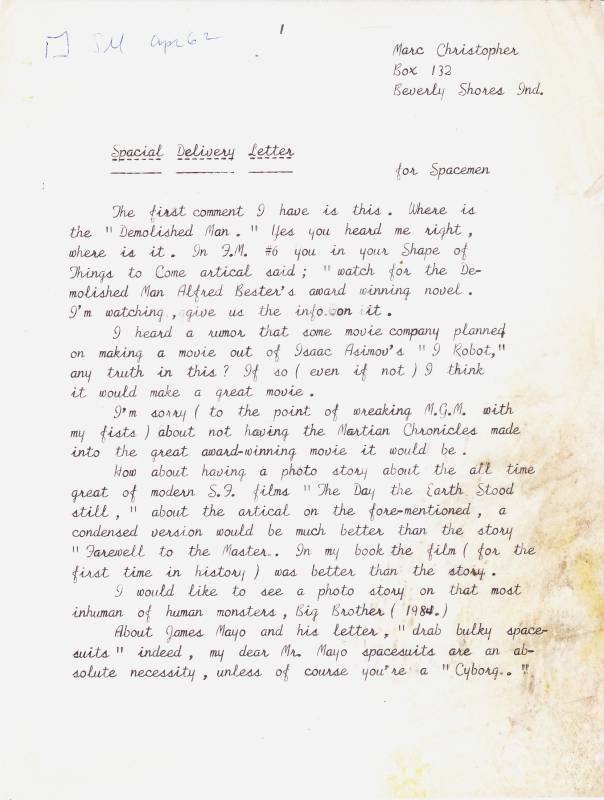 1
SM Apr 62
Marc Christopher
Box 132
Beverly Shores Ind.
Spacial Delivery Letter
for Spacemen
The first comment I have is this. Where is
the "Demolished Man." Yes you heard me right,
where is it. In F.M. #6 you in your Shape of
Things to Come artical said; "watch for the De-
molished Man Alfred Bester's award winning novel.
I'm watching, give us the info. on it.
I heard a rumor that some movie company planned
on making a movie out of Isaac Asimov's "I Robot,"
any truth in this? If so (even if not) I think
it would make a great movie.
I'm sorry (to the point of wreaking M.G.M. with
my fists) about not having the Martian Chronicles made
into the great award-winning movie it would be.
How about having a photo story about the all time
great of modern S.F. films "The Day the Earth Stood
still," about the artical on the fore-mentioned, a
condensed version would be much better than the story
"Farewell to the Master.. In my book the film (for the
first time in history) was better than the story.
I would like to see a photo story on that most
inhuman of human monsters, Big Brother (1984.)
About James Mayo and his letter, "drab bulky space-
suits" indeed, my dear Mr. Mayo spacesuits are an ab-
solute necessity, unless of course you're a "Cyborg.."!